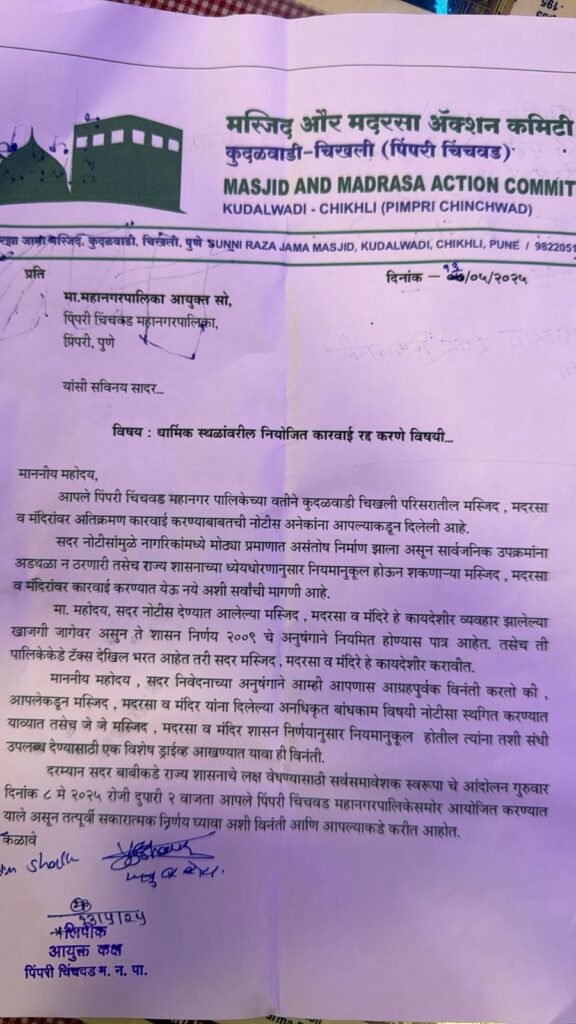 मस्जिद और मदरसा ॲक्शन कमिटी
कुदळवाडी-चिखली (पिंपरी चिंचवड)
MASJID AND MADRASA ACTION COMMIT
KUDALWADI - CHIKHLI (PIMPRI CHINCHWAD)
रझा जामा मस्जिद, कुदळवाडी, चिखली, पुणे SUNNI RAZA JAMA MASJID, KUDALWADI, CHIKHLI, PUNE / 9822051
प्रति
दिनांक - /०५/२०२५
मा.महानगरपालिका आयुक्त सो,
पिंपरी चिंचवड महानगरपालिका,
पिंपरी, पुणे
यांसी सविनय सादर...
विषय : धार्मिक स्थळांवरील नियोजित कारवाई रद्द करणे विषयी...
माननीय महोदय,
आपले पिंपरी चिंचवड महानगर पालिकेच्या वतीने कुदळवाडी चिखली परिसरातील मस्जिद , मदरसा
व मंदिरांवर अतिक्रमण कारवाई करण्याबाबतची नोटीस अनेकांना आपल्याकडून दिलेली आहे.
सदर नोटीसांमुळे नागरिकांमध्ये मोठ्या प्रमाणात असंतोष निर्माण झाला असून सार्वजनिक उपक्रमांना
अडथळा न ठरणारी तसेच राज्य शासनाच्या ध्येयधोरणानुसार नियमानुकूल होऊन शकणाऱ्या मस्जिद , मदरसा
व मंदिरांवर कारवाई करण्यात येऊ नये अशी सर्वांची मागणी आहे.
मा. महोदय, सदर नोटीस देण्यात आलेल्या मस्जिद , मदरसा व मंदिरे हे कायदेशीर व्यवहार झालेल्या
खाजगी जागेवर असुन ते शासन निर्णय २००९ चे अनुषंगाने नियमित होण्यास पात्र आहेत. तसेच ती
पालिकेकेडे टॅक्स देखिल भरत आहेत तरी सदर मस्जिद , मदरसा व मंदिरे हे कायदेशीर करावीत.
माननीय महोदय , सदर निवेदनाच्या अनुषंगाने आम्ही आपणास आग्रहपुर्वक विनंती करतो की ,
आपलेकडून मस्जिद , मदरसा व मंदिर यांना दिलेल्या अनधिकृत बांधकाम विषयी नोटीसा स्थगित करण्यात
याव्यात तसेच जे जे मस्जिद , मदरसा व मंदिर शासन निर्णयानुसार नियमानुकूल होतील त्यांना तशी संधी
उपलब्ध देण्यासाठी एक विशेष ड्राईव्ह आखण्यात यावा ही विनंती.
दरम्यान सदर बाबीकडे राज्य शासनाचे लक्ष वेधण्यासाठी सर्वसमावेशक स्वरूपा चे आंदोलन गुरुवार
दिनांक ८ मे २०२५ रोजी दुपारी २ वाजता आपले पिंपरी चिंचवड महानगरपालिकेसमोर आयोजित करण्यात
याले असुन तत्पूर्वी सकारात्मक निर्णय घ्यावा अशी विनंती आणि आपल्याकडे करीत आहोत.
कळावे
लिपीक
आयुक्त कक्ष
पिंपरी चिंचवड म. न. पा.